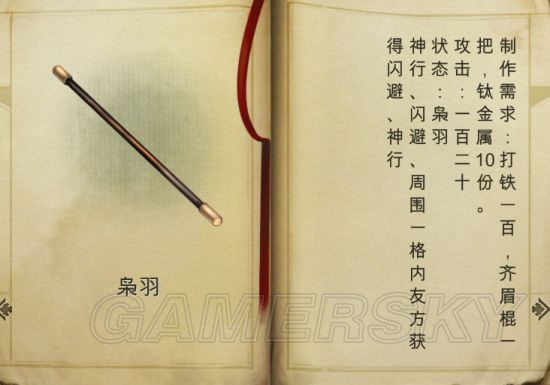 制作需求：打铁一百，齐眉棍一
把，钛金属10份。
攻击：一百二十
状态：枭羽
神行、闪避、周围一格内友方获
得闪避、神行
枭羽
GAMERSKY